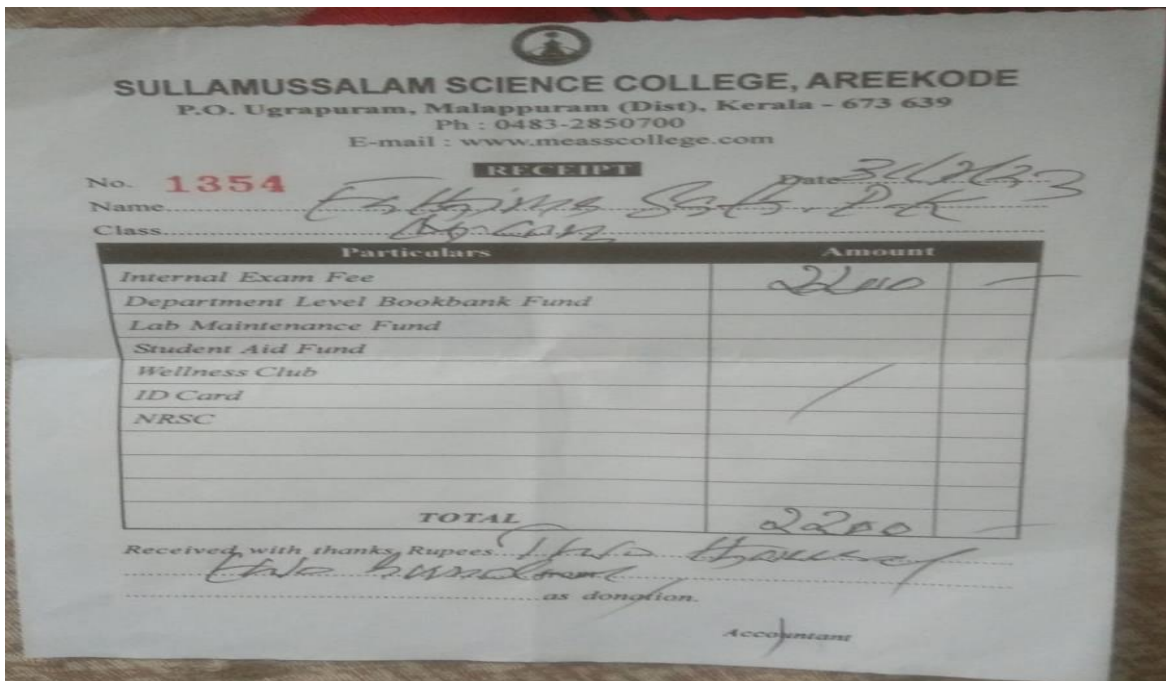 SULLAMUSSALAM SCIENCE COLLEGE, AREEKODE
P.O. Ugrapuram, Malappuram (Dist), Kerala - 673 639
Ph : 0483-2850700
E-mail : www.measscollege.com
RECEIPT
No. 1354 Date
Name Fathima P.K
Class
Particulars Amount
Internal Exam Fee 2200 —
Department Level Bookbank Fund
Lab Maintenance Fund
Student Aid Fund
Wellness Club
ID Card
NRSC
TOTAL 2200 —
Received with thanks Rupees Two thousand
two hundred
as donation.
Accountant